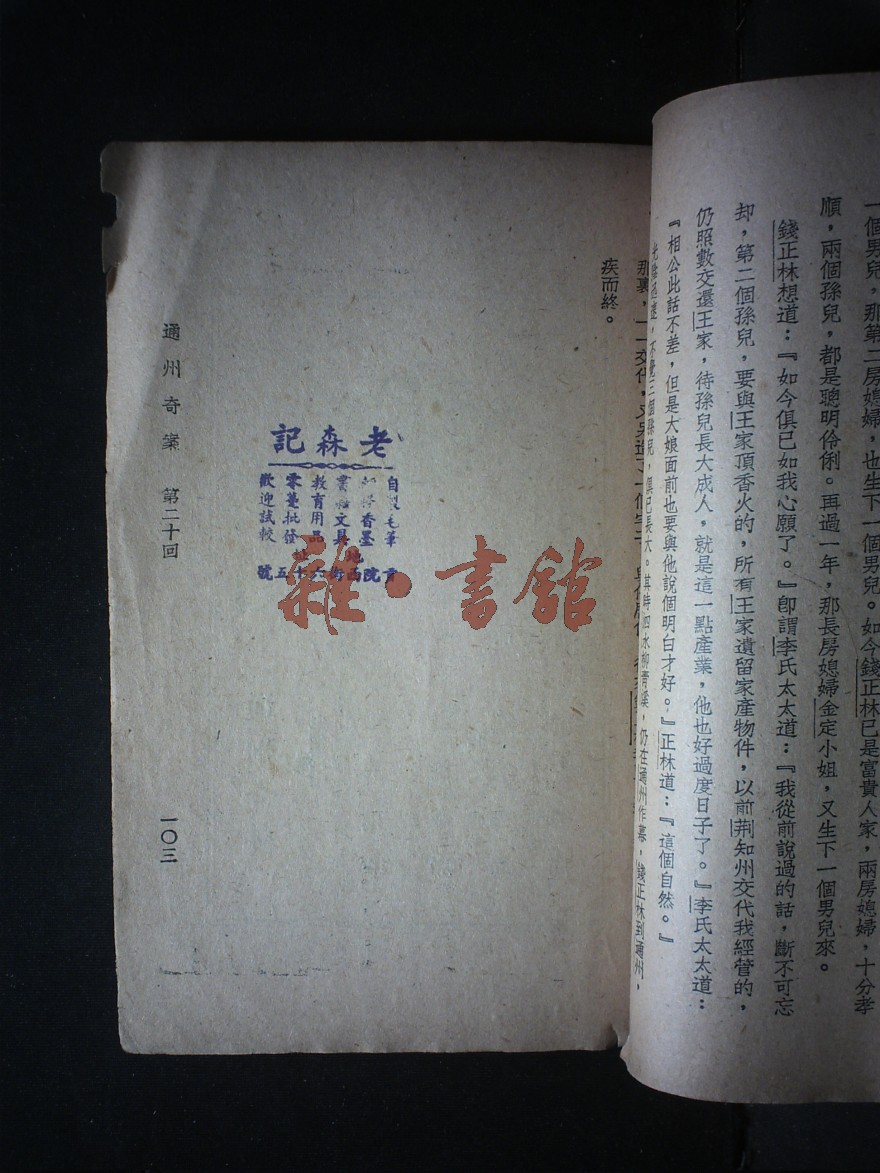 一個男兒，那第二房媳婦，也生下一個男兒。如今錢正林已是富貴人家，兩房媳婦，十分孝
順，兩個孫兒，都是聰明伶俐。再過一年，那長房媳婦金定小姐，又生下一個男兒來。
錢正林想道：『如今俱已如我心願了。』卽謂李氏太太道：『我從前說過的話，斷不可忘
却，第二個孫兒，要與王家頂香火的，所有王家遺留家產物件，以前荆知州交代我經管的，
仍照數交還王家，待孫兒長大成人，就是這一點產業，他也好過度日子了。』李氏太太道：
『相公此話不差，但是大娘面前也要與他說個明白才好。』正林道：『這個自然。』
光陰迅速，不覺三個孫兒，俱已長大。其時四水柳青溪，仍在通州作幕，錢正林到通州，
那裏，一一交代，
疾而終。
老森記
自製毛筆
香墨
文具
教育用品
零躉批發
歡迎試較
地址
貢院西街六十五號
雜·書館
通州奇案 第二十回
一〇三